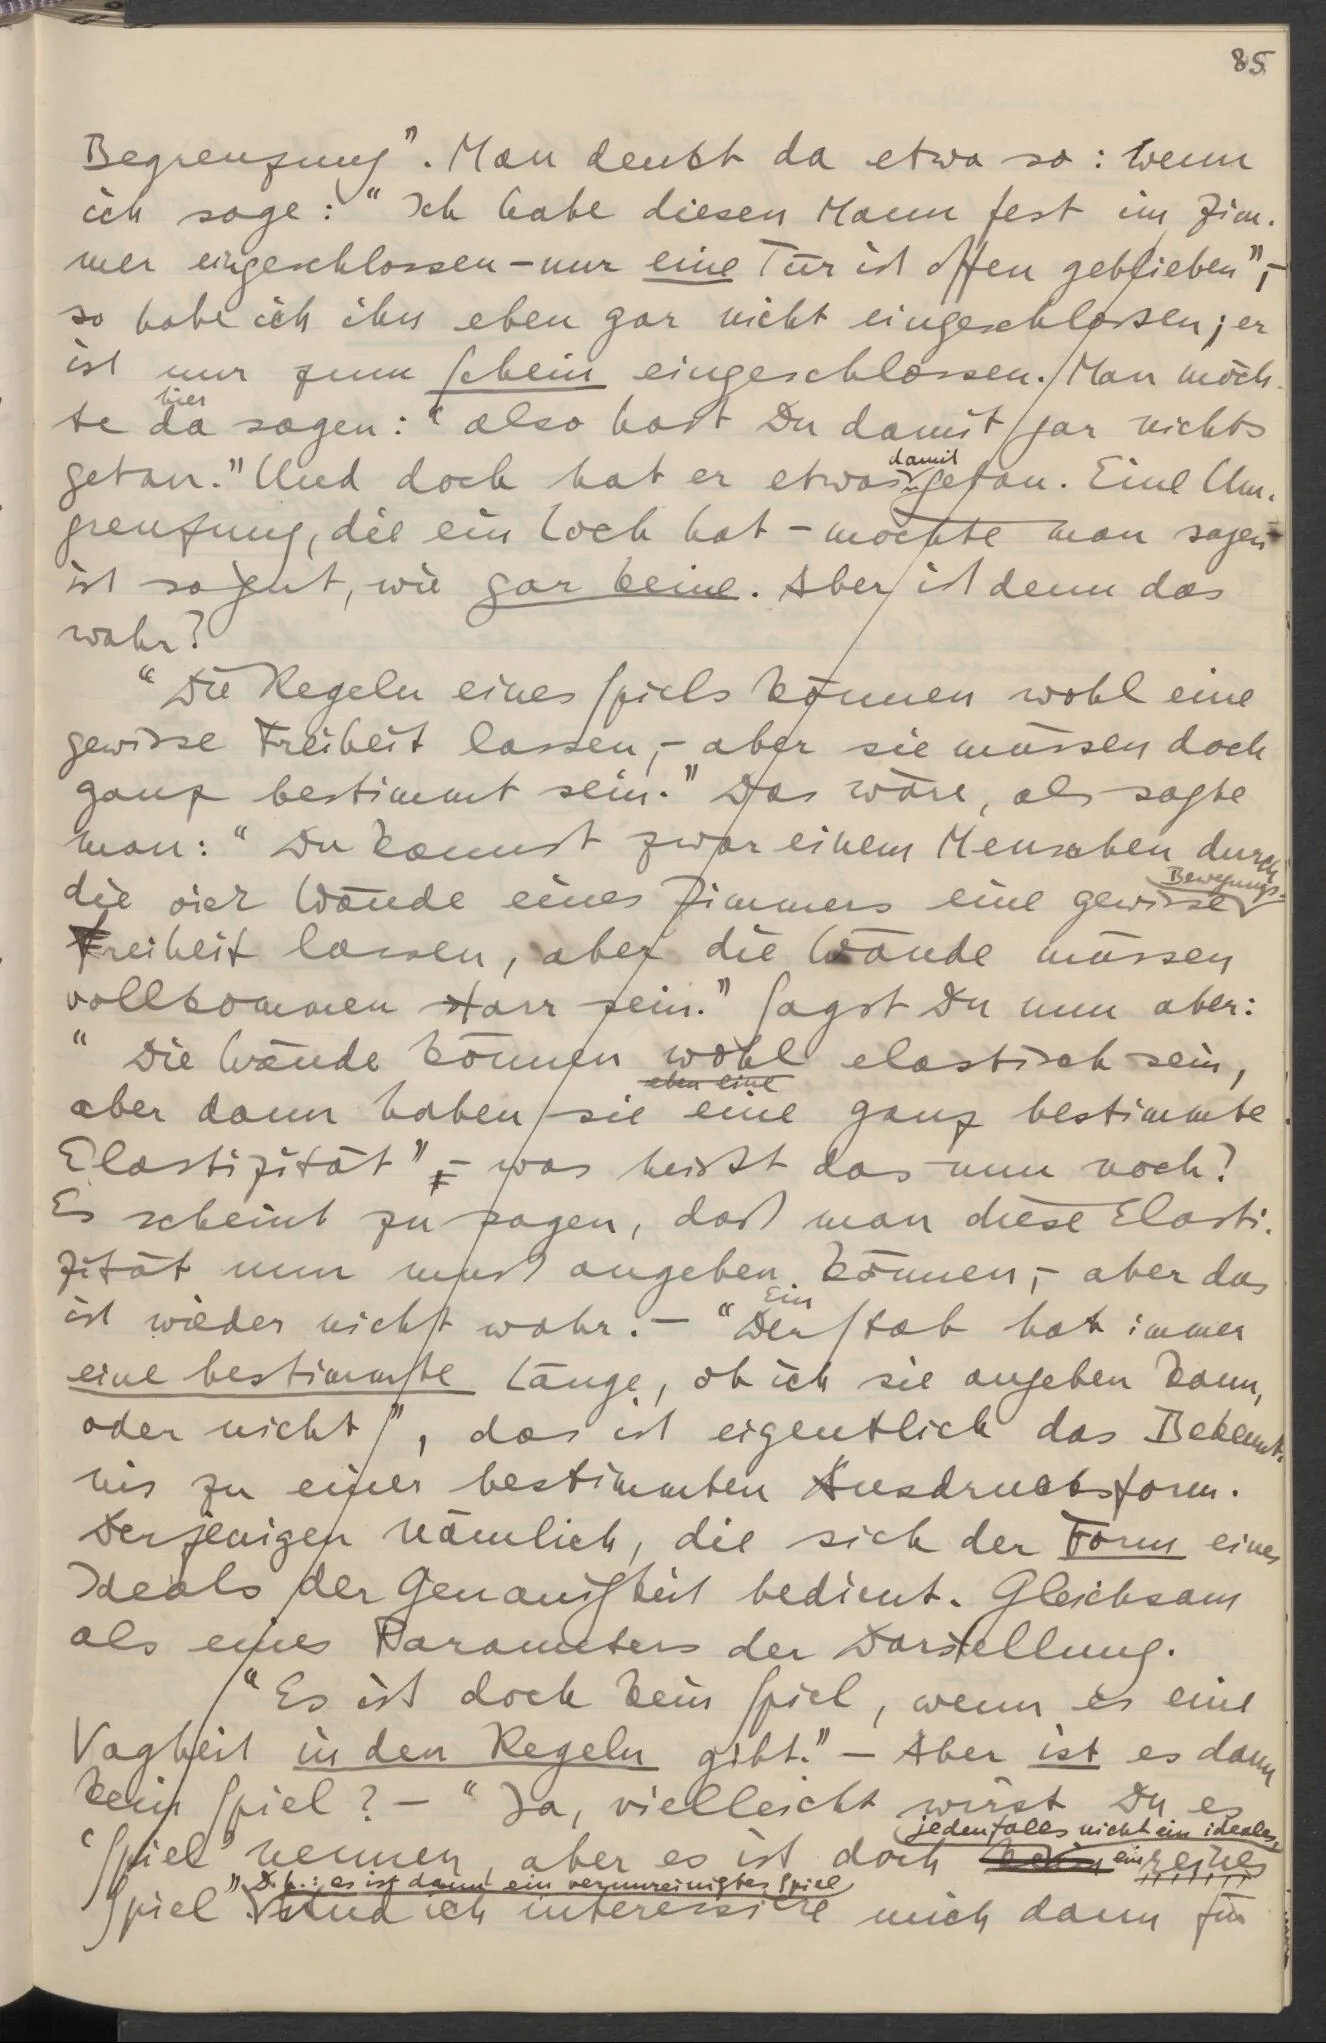 85
Begrenzung". Man denkt da etwa so: Wenn
ich sage: "Ich habe diesen Mann fest im Zim-
mer eingeschlossen – nur eine Tür ist offen geblieben", –
so habe ich ihn eben gar nicht eingeschlossen; er
ist nur zum Schein eingeschlossen. Man möch-
hier
te da sagen: "also hast Du damit gar nichts
damit
getan." Und doch hat er etwas getan. Eine Um-
grenzung, die ein Loch hat – möchte man sagen –
ist so gut, wie gar keine. Aber ist denn das
wahr?
"Die Regeln eines Spiels können wohl eine
gewisse Freiheit lassen, – aber sie müssen doch
ganz bestimmt sein." Das wäre, als sagte
man: "Du kannst zwar einem Menschen durch
Bewegungs-
die vier Wände eines Zimmers eine gewisse
Freiheit lassen, aber die Wände müssen
vollkommen starr sein." Sagst Du nun aber:
"Die Wände können wohl elastisch sein,
eben eine
aber dann haben sie eine ganz bestimmte
Elastizität" – was heißt das nun noch?
Es scheint zu sagen, daß man diese Elasti-
zität nun muß angeben können, – aber das
Ein
ist wieder nicht wahr. – "Der Stab hat immer
eine bestimmte Länge, ob ich sie angeben kann,
oder nicht", das ist eigentlich das Bekennt-
nis zu einer bestimmten Ausdrucksform.
Derjenigen nämlich, die sich der Form eines
Ideals der Genauigkeit bedient. Gleichsam
als eines Parameters der Darstellung.
"Es ist doch kein Spiel, wenn es eine
Vagheit in den Regeln gibt." – Aber ist es dann
kein Spiel? – "Ja, vielleicht wirst Du es
jedenfalls nicht ein ideales,
'Spiel' nennen, aber es ist doch kein ein reines
D.h.: es ist dann ein verunreinigtes Spiel
Spiel". Und ich interessiere mich dann für